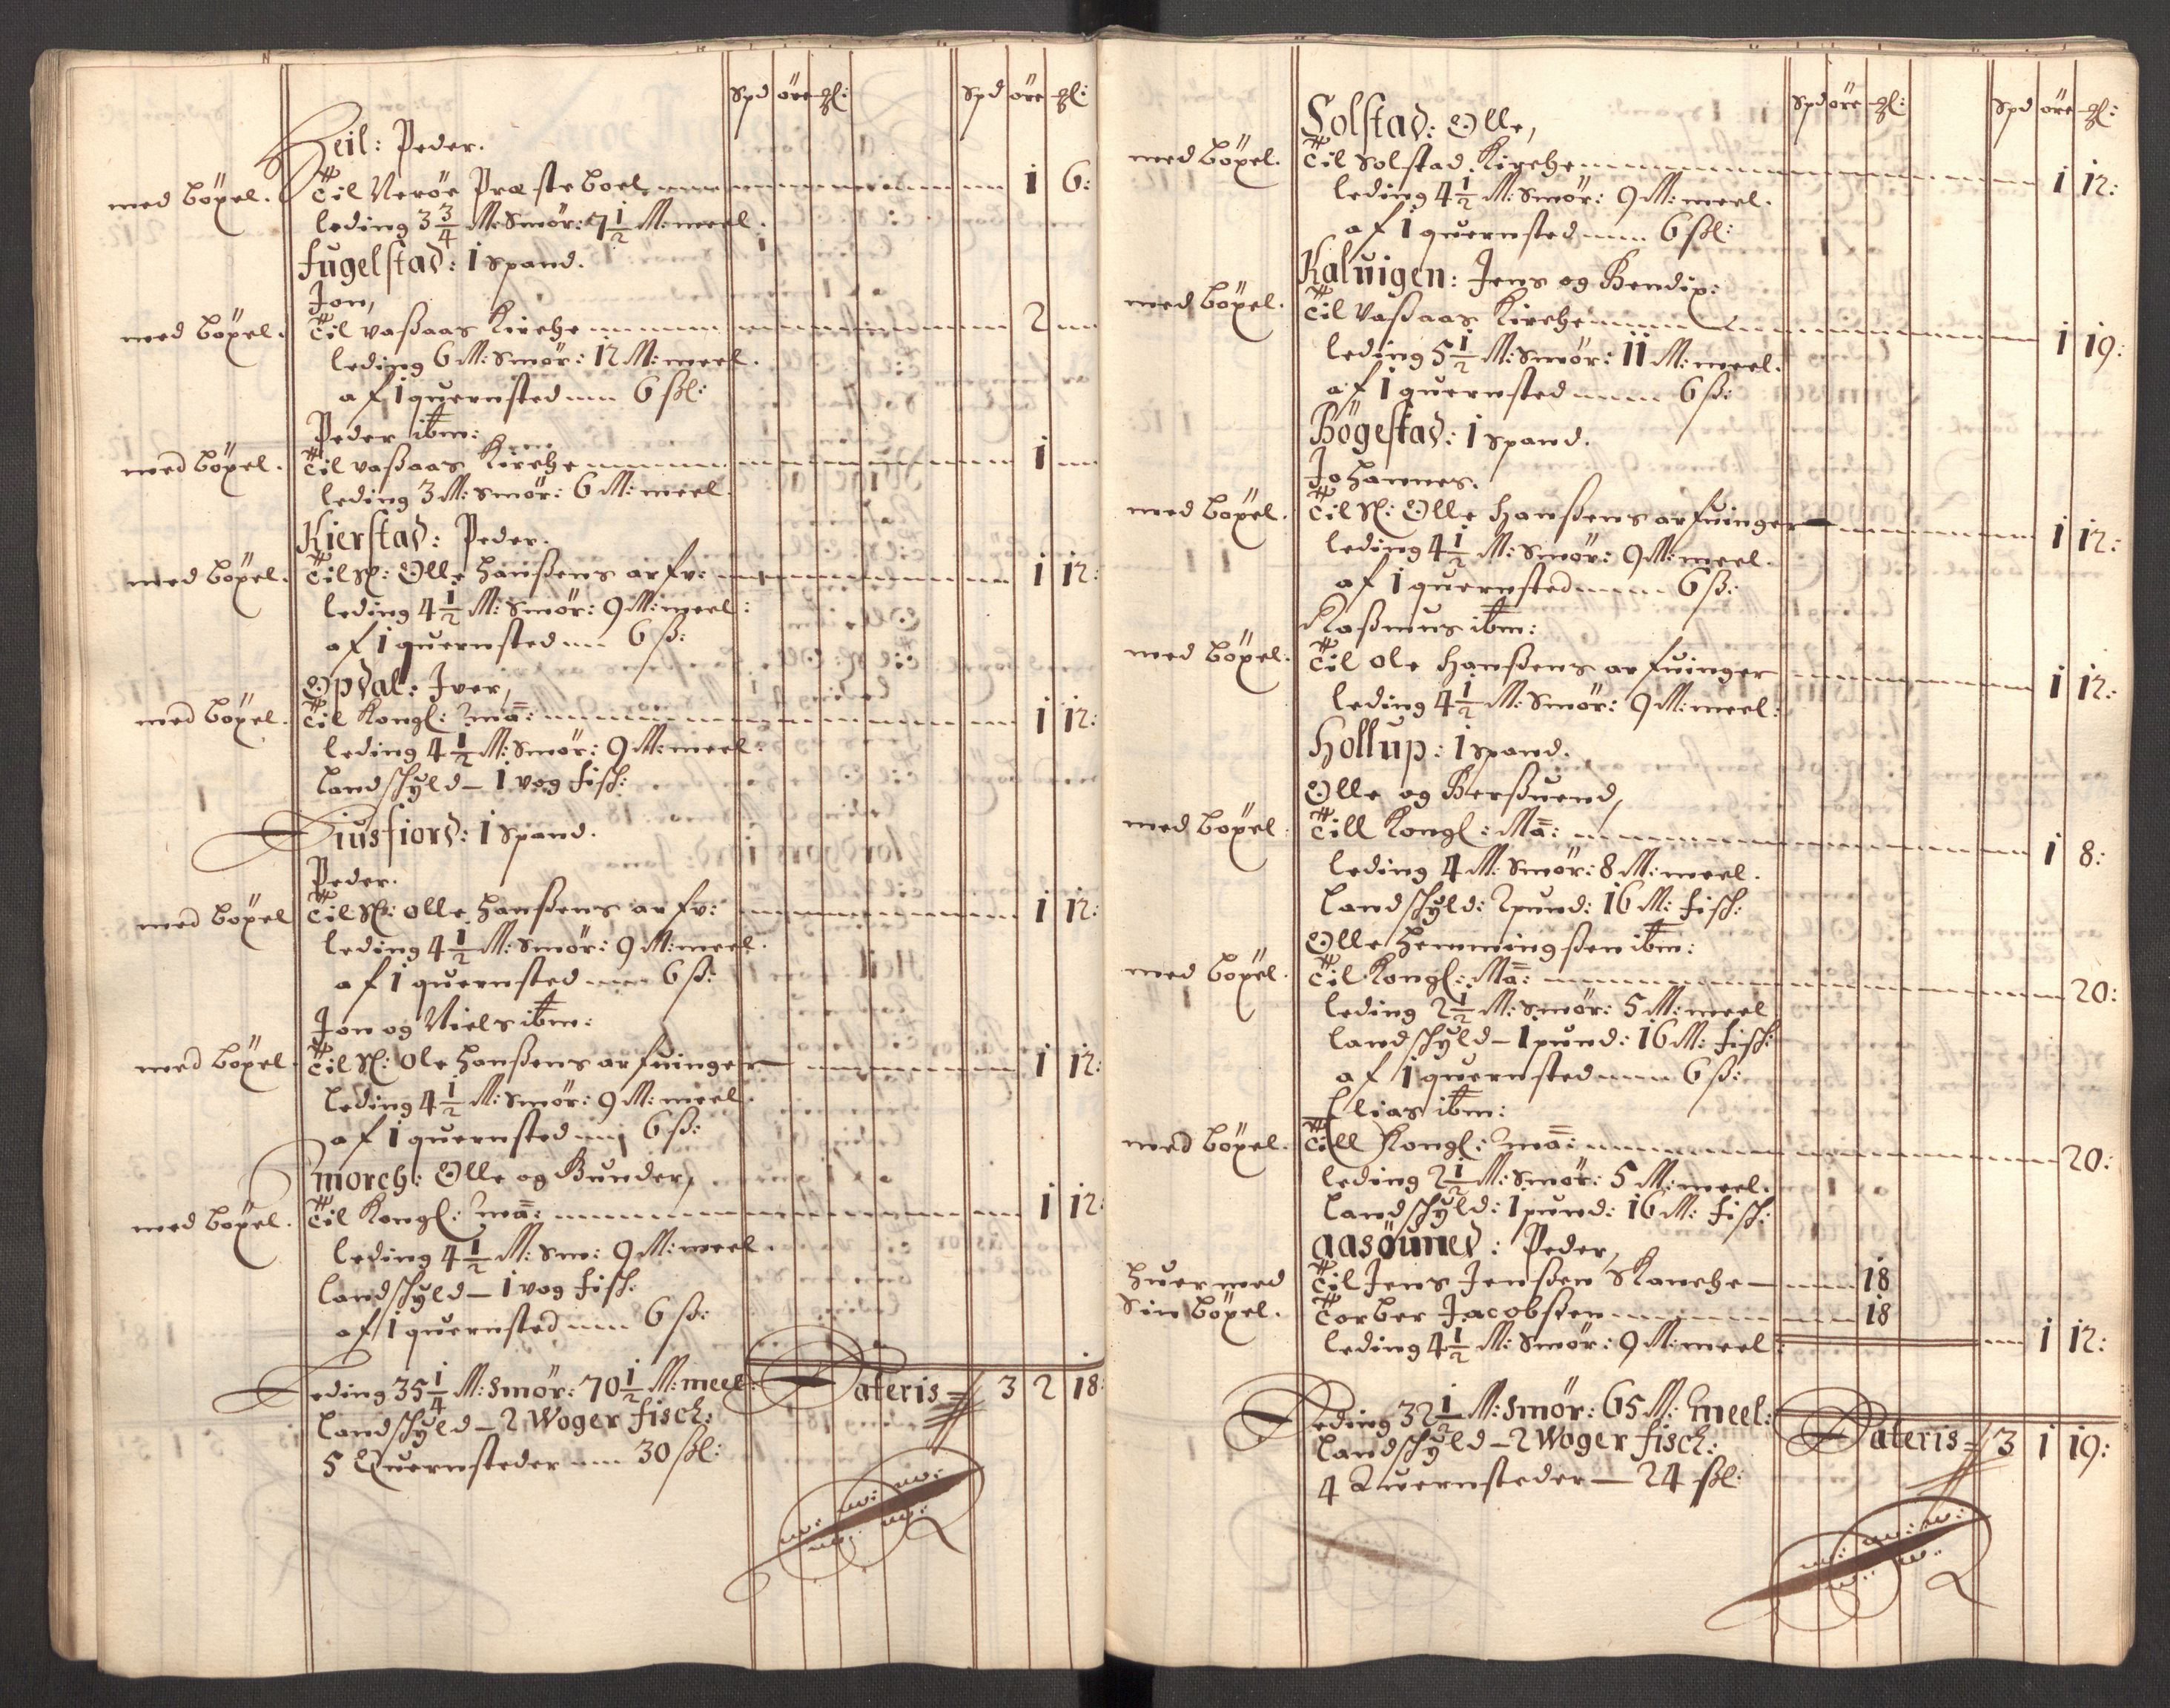 Spd öre ߧl: Spd öre ߧl:
Heil: Peder.
med böxel. Til Nerøe Præsteboel 1 6:
leding 3 3/4 M: Smör: 7 1/2 M: meel.
Fugelstad: 1 spand.
Jon,
med böxel. Til Vaßaas Kirche 2
leding 6 M: Smör: 12 M: meel.
af 1 quernsted 6 ßl:
Peder ibm:
med böxel. Til Vaßaas Kirche 1
leding 3 M: Smör: 6 M: meel.
Kierstad: Peder.
med böxel. Til Sl: Olle Hanßens arfv: 1 12:
leding 4 1/2 M: Smör: 9 M: meel:
af 1 quernsted 6 ß:
Opdal: Iver,
med böxel. Til Kongl: Ma: 1 12:
leding 4 1/2 M: Smör: 9 M: meel:
Landschyld – 1 vog fisch:
Diusfiord: 1 Spand.
Peder.
med böxel Til Sl: Olle Hanßens arfv: 1 12:
leding 4 1/2 M: Smör: 9 M: meel.
af 1 quernsted 6 ß:
Jon og Niels ibm:
med böxel. Til Sl: Ole Hanßens arfvinger 1 12:
leding 4 1/2 M: Smör: 9 M: meel.
af 1 quernsted 6 ß:
Smorch: Olle og Gunder,
med böxel. Til Kongl: Ma: 1 12:
leding 4 1/2 M: Sm: 9 M: meel
Landschyld – 1 vog fisch:
af 1 quernsted 6 ß:
Leding 35 1/4 M: Smör: 70 1/2 M: meel: Lateris 3 2 18:
Landschyld – 2 Woger fisch:
5 Quernsteder 30 ßl:
Spd öre ߧl: Spd öre ߧl:
Solstad: Olle,
med böxel. Til Solstad Kirche 1 12:
leding 4 1/2 M: Smör: 9 M: meel.
af 1 quernsted 6 ßl:
Kalvigen: Jens og Bendix:
med böxel. Til Vaßaas Kirche 1 19:
leding 5 1/2 M: Smör: 11 M: meel.
af 1 quernsted 6 ß:
Bögestad: 1 spand.
Johannes.
med böxel. Til Sl: Olle Hanßens arfvinger 1 12:
leding 4 1/2 M: Smör: 9 M: meel.
af 1 quernsted 6 ß:
Raßmus ibm:
med böxel. Til Ole Hanßens arfvinger 1 12:
leding 4 1/2 M: Smör: 9 M: meel:
Hollup: 1 spand.
Olle og Berßvend,
med böxel. Till Kongl: Ma: 1 8:
leding 4 M: Smör: 8 M: meel.
Landschyld: 2 pund: 16 M: fisch:
Olle Hemmingßen ibm:
med böxel. Til Kongl: Ma: 20:
leding 2 1/2 M: Smör: 5 M: meel
Landschyld – 1 pund: 16 M: fisch:
af 1 quernsted 6 ß:
Elias ibm:
med böxel. Till Kongl: Ma: 20:
leding 2 1/2 M: Smör: 5 M: meel.
Landschyld: 1 pund: 16 M: fisch:
Aasöuned: Peder,
Huer med Til Jens Jenßen Skanche 18
Sin böxel. Torber Jacobßen 18
leding 4 1/2 M: Smör: 9 M: meel: 1 12:
Leding 32 1/2 M: Smör: 65 M: meel: Lateris 3 1 19:
Landschyld – 2 Woger fisch:
4 Quernsteder – 24 ßl: